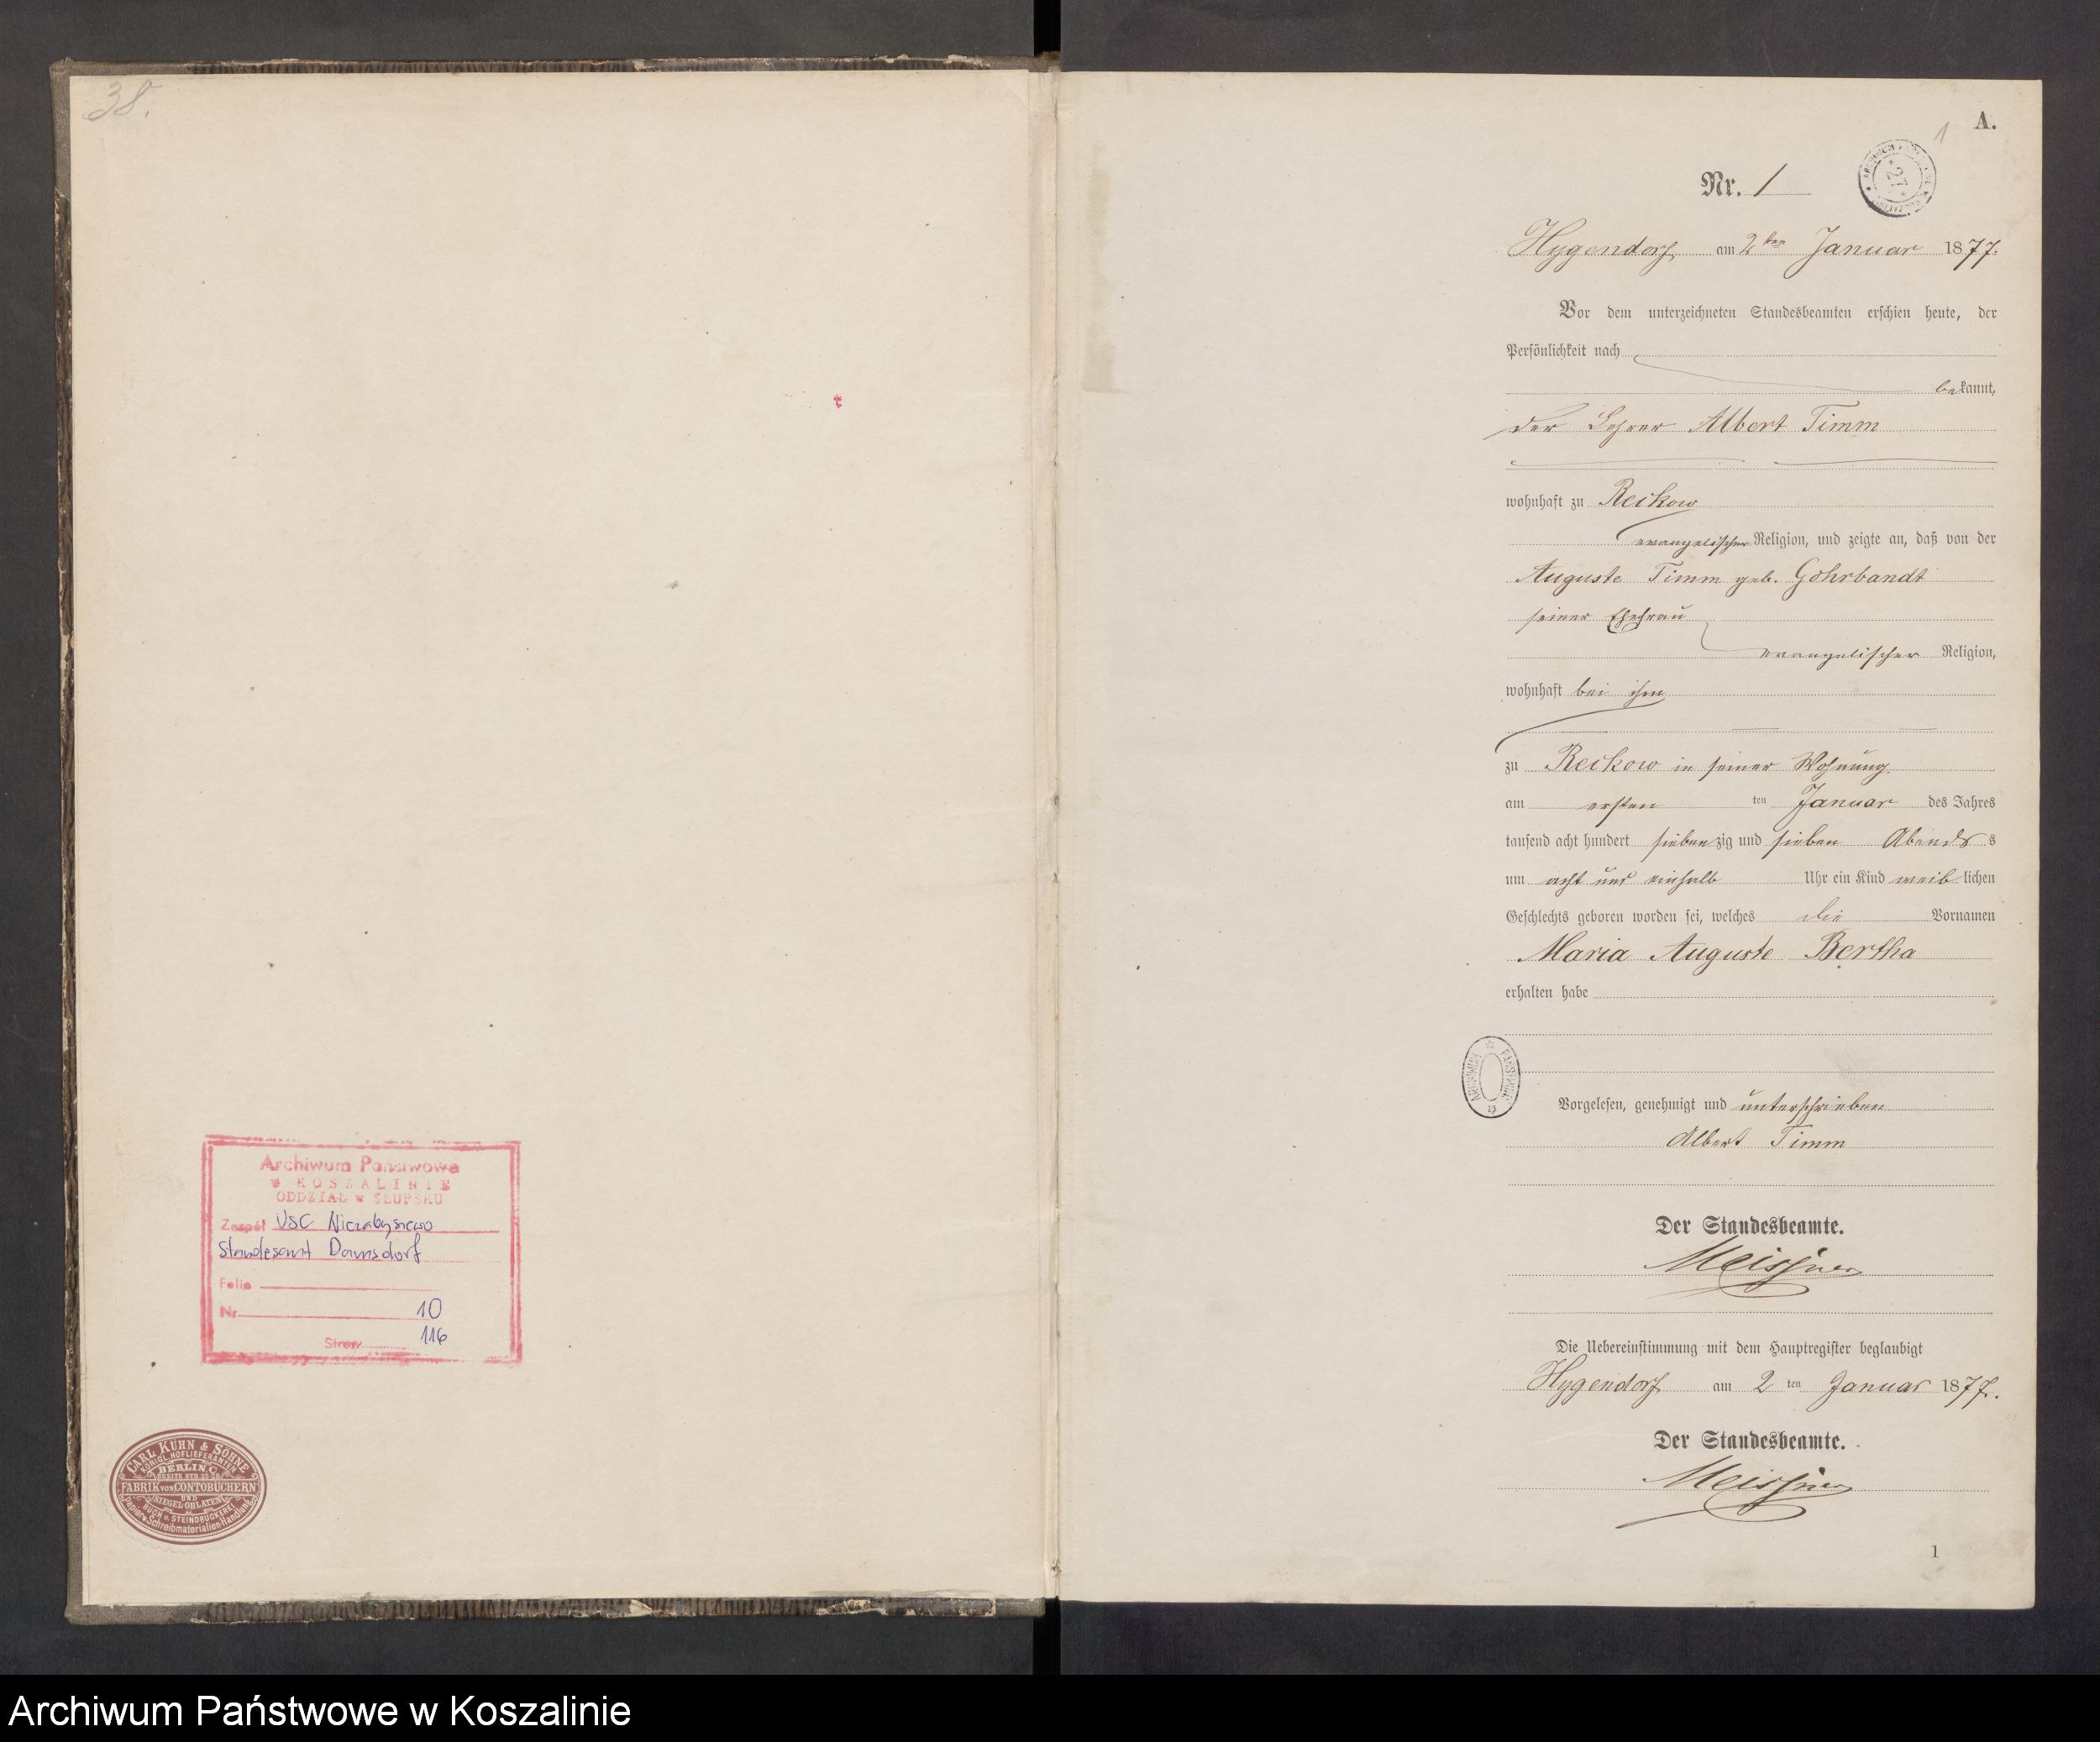 38.
Archiwum Państwowe
w KOSZALINIE
ODDZIAŁ w SŁUPSKU
Zespół USC Niezabyszewo
Standesamt Damsdorf
Folio
Nr 10
Stron 116
CARL KÜHN & SÖHNE
KÖNIGL. HOFLIEFERANTEN
BERLIN, C.
BREITE STR.
FABRIK VON CONTOBÜCHERN
UND
SIEGEL-OBLATEN
BUCH- U. STEINDRUCKEREI
Papier- u. Schreibmaterialien-Handlung
A.
1
Nr. 1
27
Hygendorf am 2ten Januar 1877.
Vor dem unterzeichneten Standesbeamten erschien heute, der
Persönlichkeit nach
bekannt,
der Lehrer Albert Timm
wohnhaft zu Reckow
evangelischer Religion, und zeigte an, daß von der
Auguste Timm geb. Gohrbandt
seiner Ehefrau
evangelischer Religion,
wohnhaft bei ihm
zu Reckow in seiner Wohnung
am ersten ten Januar des Jahres
tausend acht hundert siebenzig und sieben Abends s
um acht und einhalb Uhr ein Kind weiblichen
Geschlechts geboren worden sei, welches die Vornamen
Maria Auguste Bertha
erhalten habe
ARCHIWUM PAŃSTWOWE
Vorgelesen, genehmigt und unterschrieben
Albert Timm
Der Standesbeamte.
Meissner
Die Uebereinstimmung mit dem Hauptregister beglaubigt
Hygendorf am 2 ten Januar 1877.
Der Standesbeamte.
Meissner
1
Archiwum Państwowe w Koszalinie